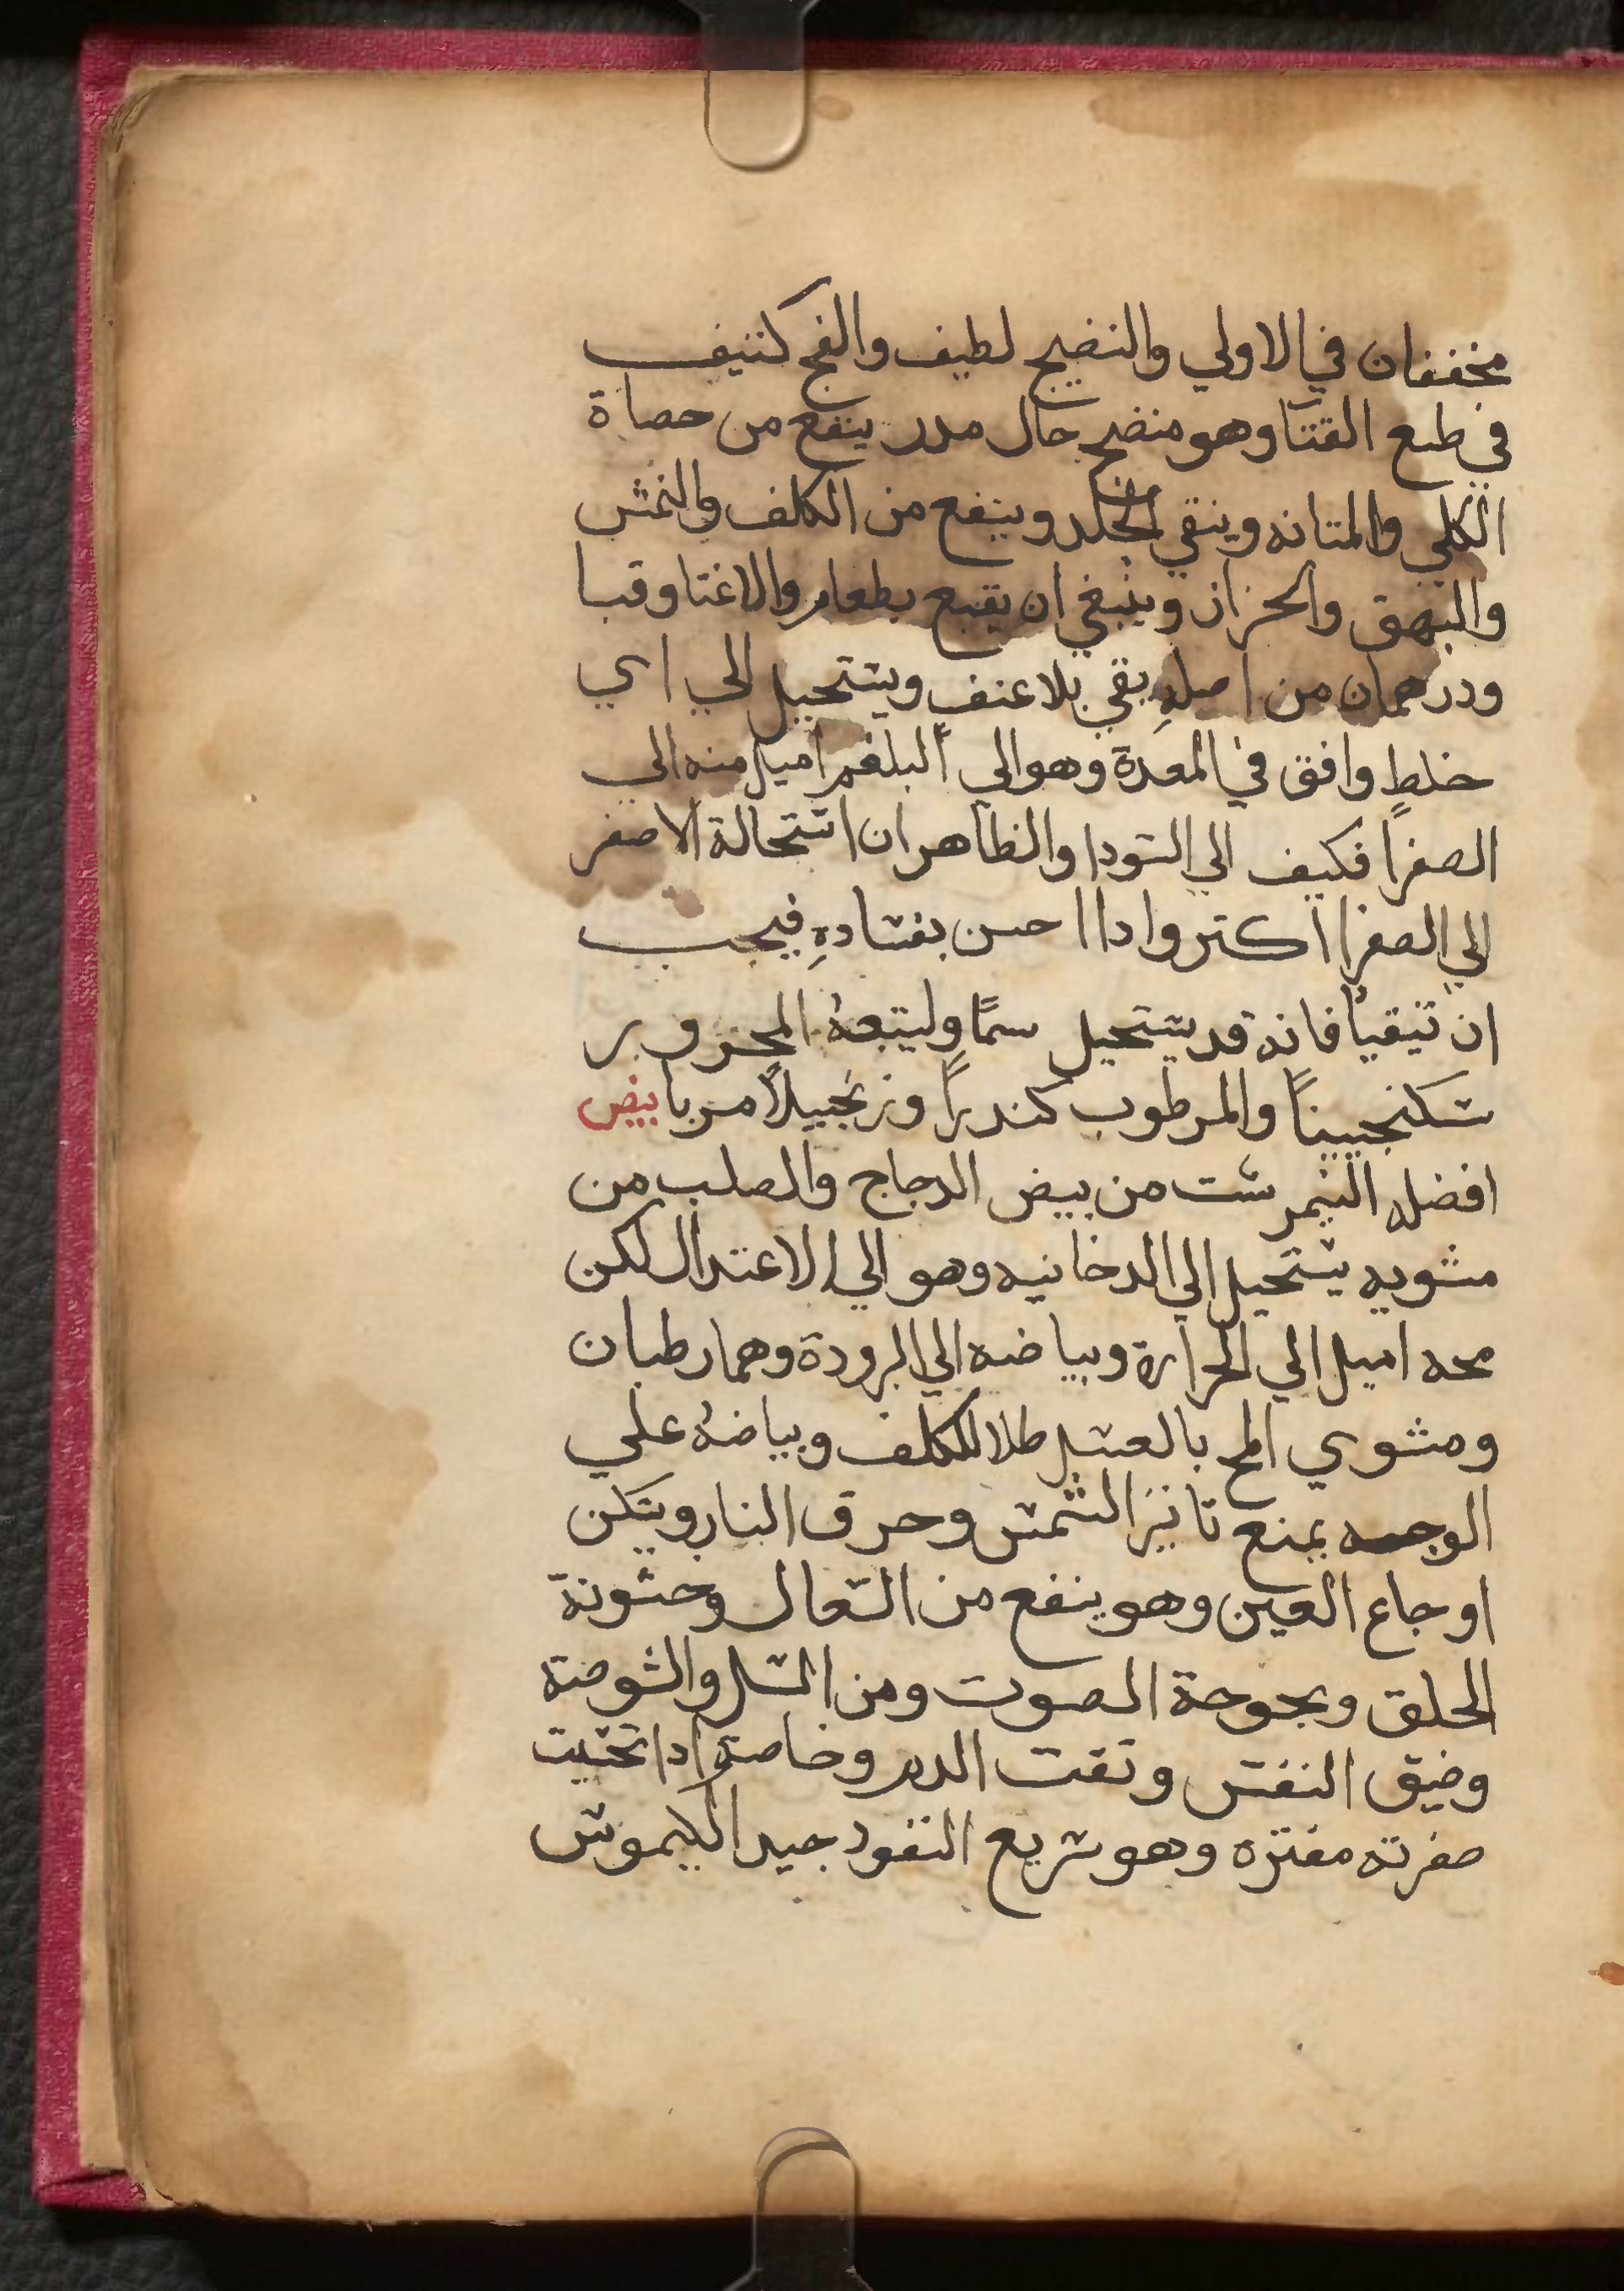 مخففان في الاولي والنضيج لطيف والفج كثيف
في طبع القثا وهو منضج جال مدر ينفع من حصاة
الكلي والمتانه وينقي الجلد وينفع من الكلف والنمش
والبهق والحزاز وينبغي ان يتبع بطعام والا غثا وقيا
ودرهمان من اصلهِ يقي بلا عنف ويستحيل الي اي
خلطٍ وافق في المعدة وهو الي البلغم اميل منه الي
الصفرا فكيف الي السودا والظاهر ان استحالة الاصفر
الي الصفرا اكثر واداا حسن بفسادهِ فيجب
ان تيقيأ فانه قد يستحيل سمًا وليتبعهُ المحرور
سكنجبينًا والمرطوب كندرًا وزنجبيلاً مربا بيض
افضله النيمرشت من بيض الدجاج والصلب من
مشويه يستحيل الي الدخانيه وهو الي الاعتدال لكن
محه اميل الي الحرارة وبياضه الي البرودة وهما رطبان
ومشوي المح بالعسل طلا للكلف وبياضهُ علي
الوجه يمنع تاثير الشمس وحرق النار ويسكن
اوجاع العين وهو ينفع من السعال وخشونة
الحلق وبحوحة الصوت ومن السل والشوصة
وضيق النفس ونفث الدم وخاصة ادا تحسيت
صفرته مفتره وهو سريع النفود جيد الكيموس